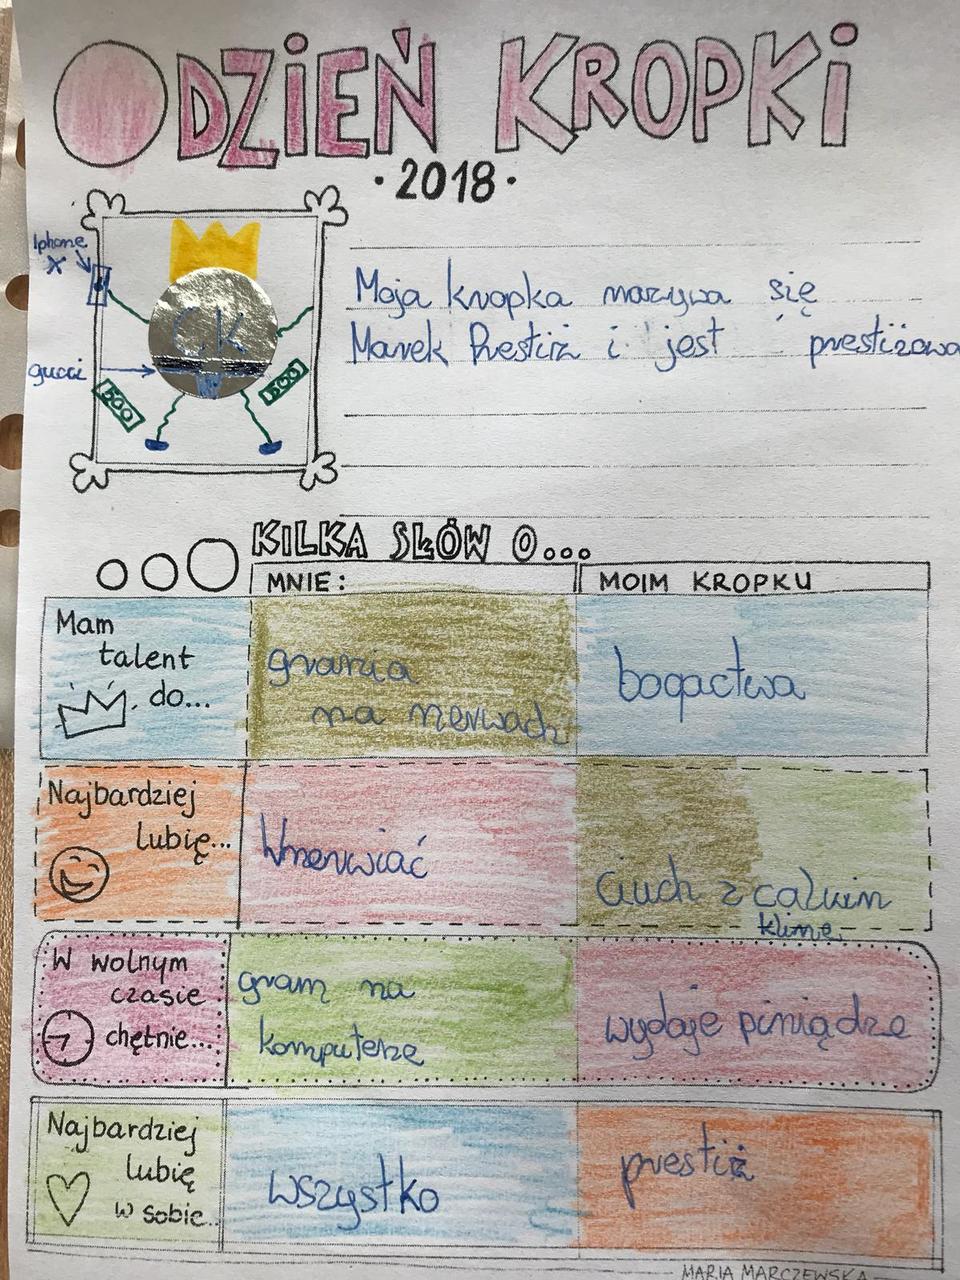 DZiEŃ KROPKi
·2018·
Iphone
X
CK
gucci
500
500
Moja kropka nazywa się
Marek Prestiż i jest prestiżowa
KILKA SŁÓW O...
MNIE:
MOIM KROPKU
Mam
talent
do...
grania
na nerwach
bogactwa
Najbardziej
lubię...
Wnerwiać
Ciuch z calvin
kline
W wolnym
czasie
chętnie...
gram na
komputerze
wydaje piniądze
Najbardziej
lubię
w sobie...
wszystko
prestiż
MARIA MARCZEWSKA